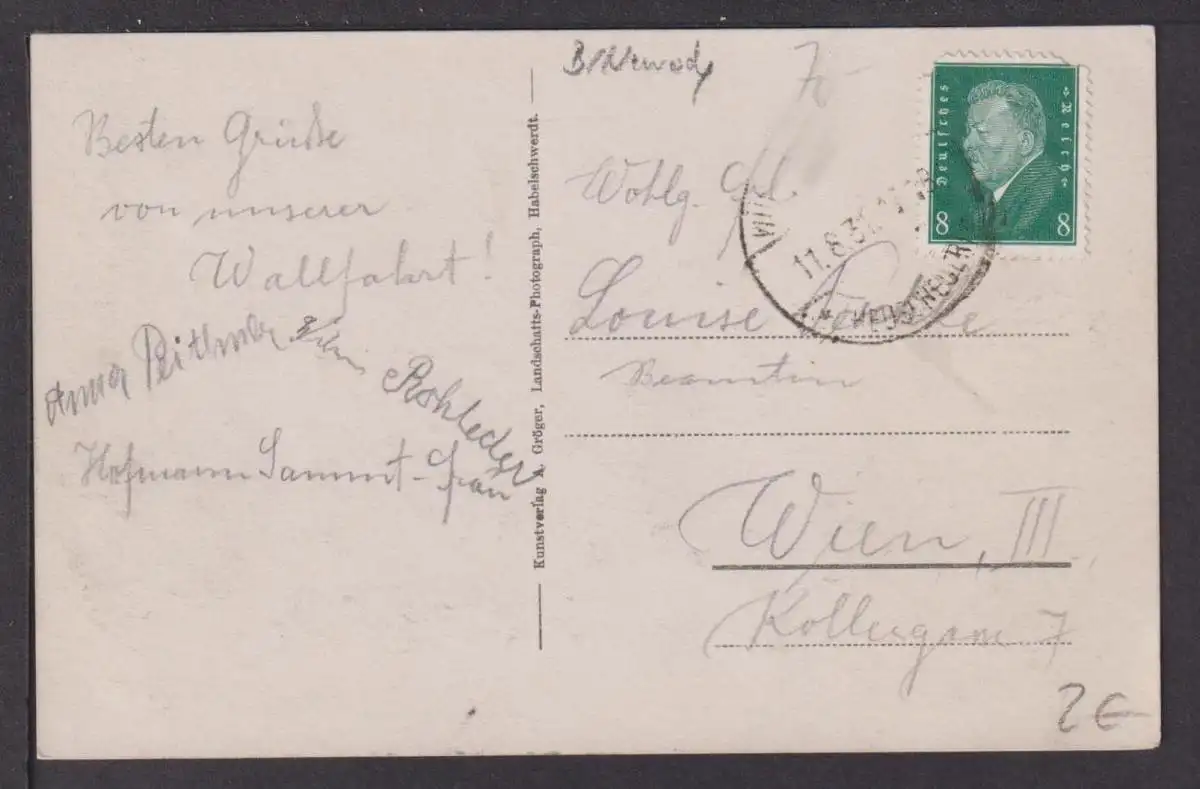 Besten Grüße
von unserer
Wallfahrt!
Anna
Rohleder
Hofmann Sammt-Frau
Kunstverlag A. Gröger, Landschafts-Photograph, Habelschwerdt.
70
Deutsches Reich
8 8
11.6.31.
Wohlg. Frl.
Louise
Beamtin
Wien, III.
Kollergasse 7
2€